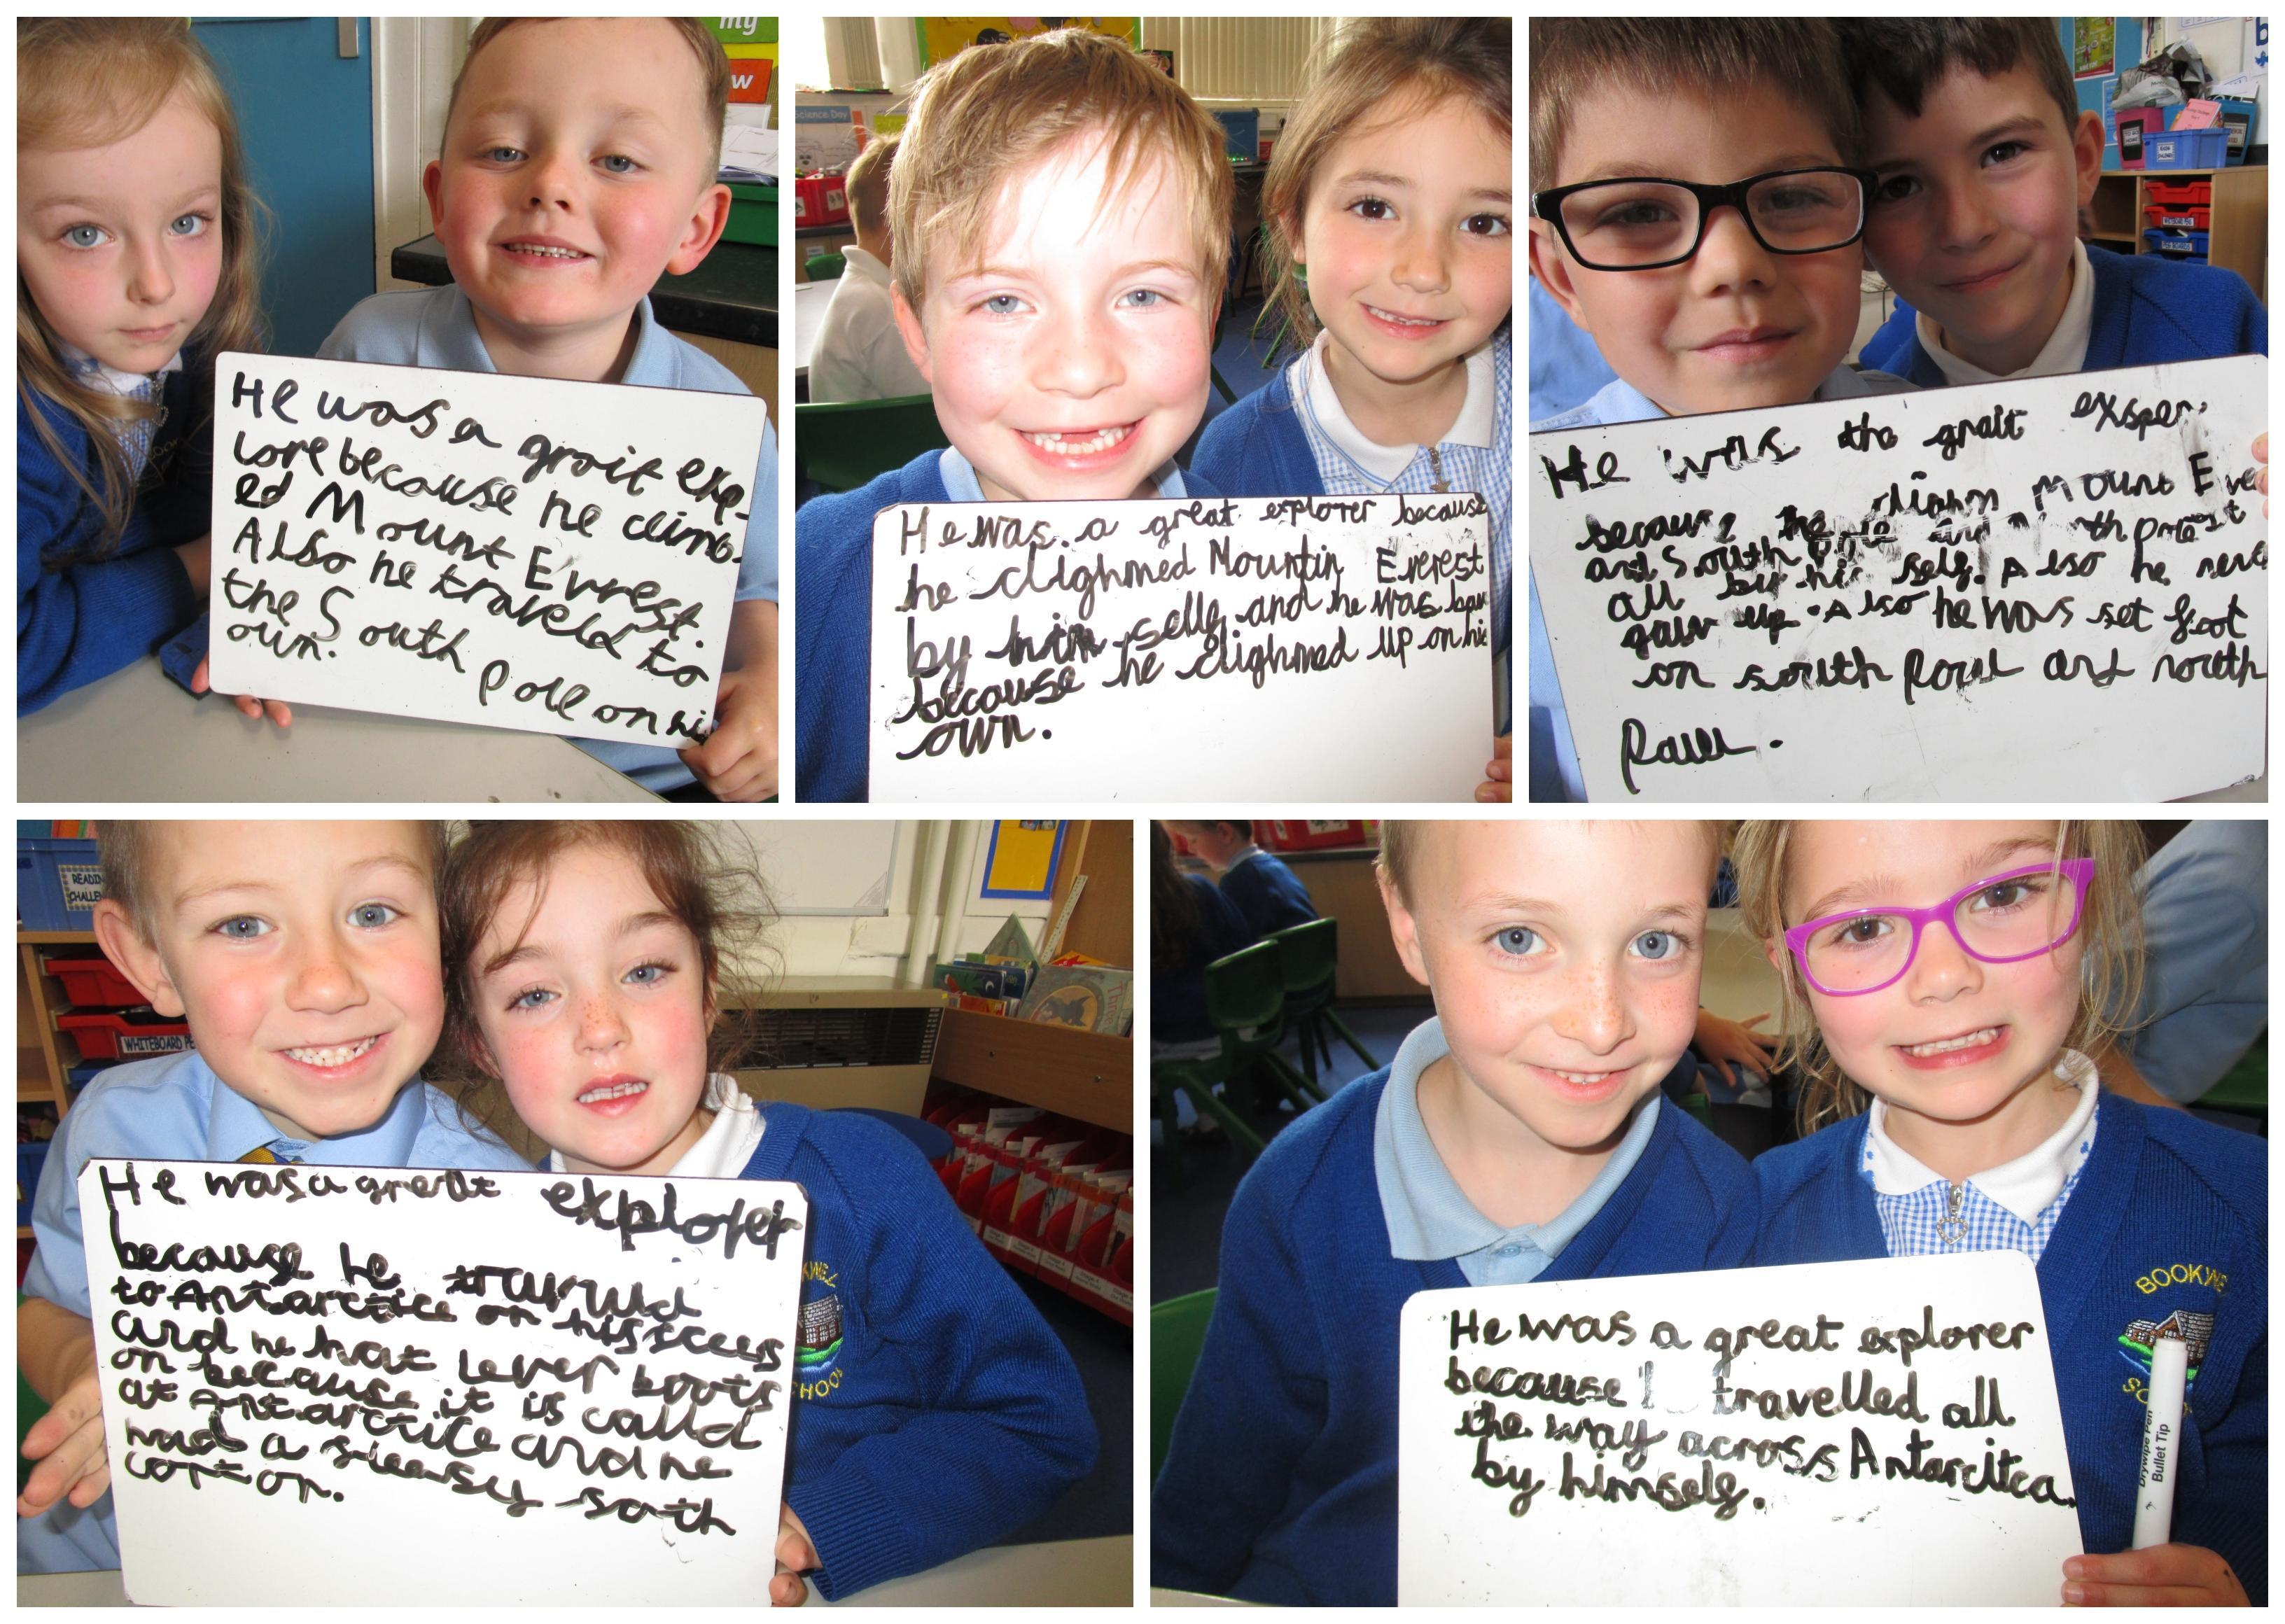 my
w
He was a grait exp-
lore because he climb-
ed Mount Evrest.
Also he traveld to
the South Pole on hi
own.
Science Day
He was a great explorer because
he clighmed Mountin Everest
by him selly and he was
because he clighmed up on his
own.
He was the grait exsper
because he climm Mount Eve
and South
all by his self. Also he
gaiv up. Also he was set foot
on south Poul and nouth
Paul.
READIN
CHALLE
WHITEBOARD PE
He was a great explorer
because he
to Antarctice on his
and he hat lever boots
on because it is calld
at Antarctice and he
had a sleensy sath
cort on.
OKWEL
CHOOL
He was a great explorer
because travelled all
the way across Antarcitca
by himself.
BOOKWE
SC
Drywipe Pen
Bullet Tip